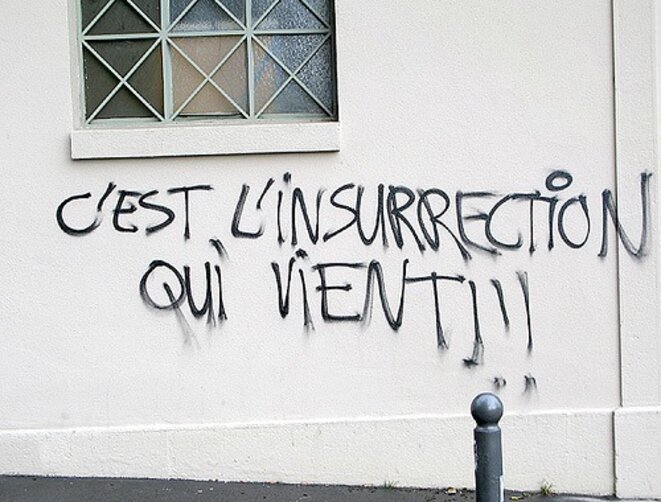 C'EST L'INSURRECTION
QUI VIENT!!!